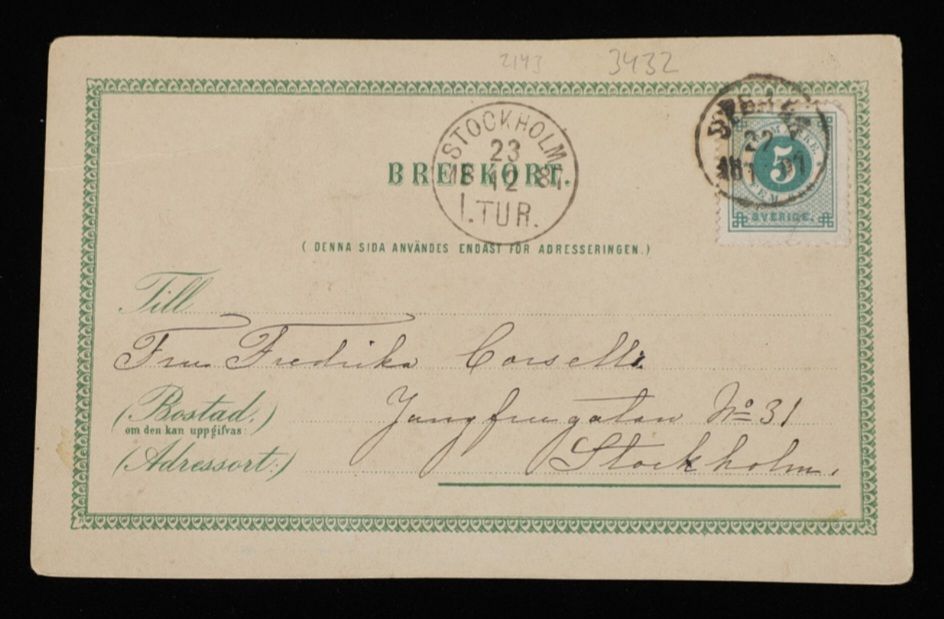 2143 3432
STOCKHOLM
23
12
1.TUR.
22
BREFKORT.
FEM ÖRE
5
FEM
SVERIGE.
(DENNA SIDA ANVÄNDES ENDAST FÖR ADRESSERINGEN.)
Till
Fru Fredrika Corselli
(Bostad:) Jungfrugatan No 31
om den kan uppgifvas:
(Adressort:) Stockholm.